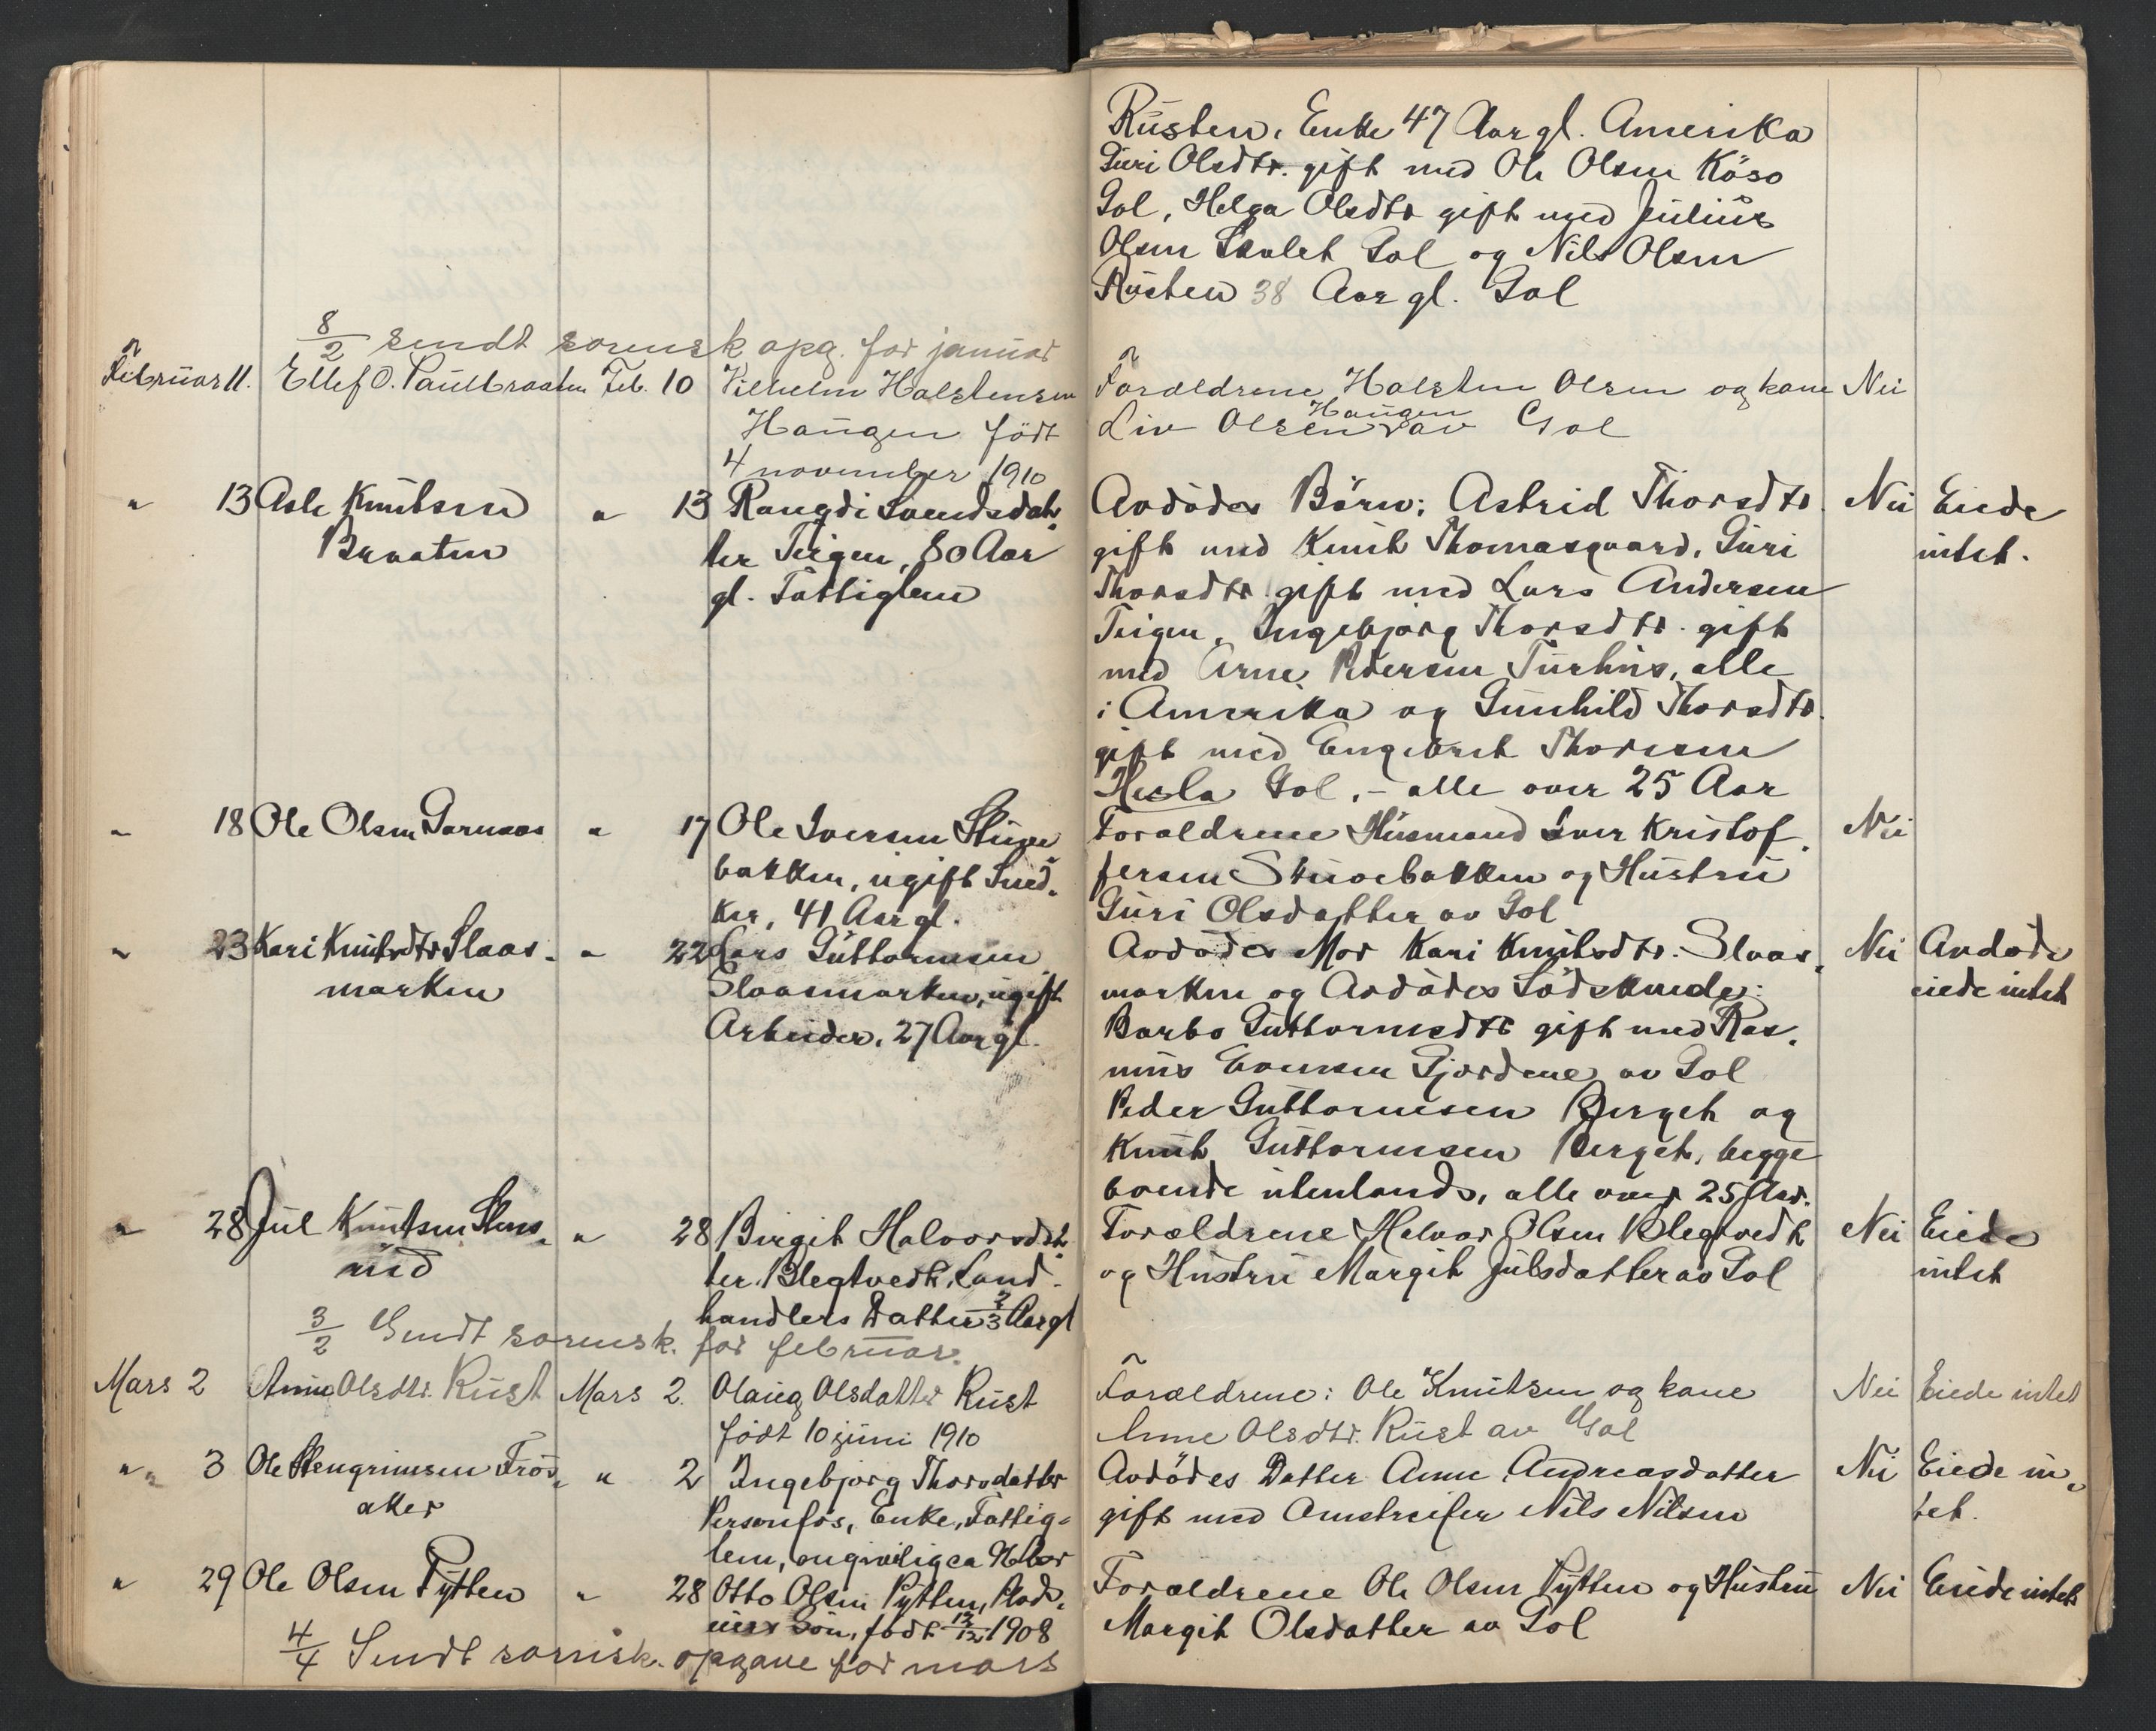 Rusten, Enke 47 Aar gl. Amerika
Guri Olsdtr. gift med Ole Olsen Köso
Gol, Helga Olsdtr gift med Julius
Olsen Skulet Gol og Nils Olsen
Rusten 38 Aar gl. Gol
8/2 sendt sorensk opg. for januar
Februar 11. Ellef O. Paulbraaten Feb. 10 Vilhelm Halstensen Forældrene Halsten Olsen og kone Nei
Haugen födt Liv Olsen Haugen av Gol
4 november 1910
" 13 Asle Knutsen " 13 Rangdi Svendsdat- Avdödes Börn: Astrid Thorsdtr. Nei Eiede
Braaten ter Teigen, 80 Aar gift med Knut Thomasgaard, Guri intet.
gl. Fattiglem Thorsdtr gift med Lars Andersen
Teigen, Ingebjörg Thorsdtr. gift
med Arne Pedersen Turhus, alle
i Amerika og Gunhild Thorsdtr.
gift med Engebret Thoresen
Hesla Gol, - alle over 25 Aar
" 18 Ole Olsen Garnaas " 17 Ole Iversen Stuve Forældrene Husmand Iver Kristof- Nei
bakken, ugift Sned- fersen Stuvebakken og Hustru
ker, 41 Aar gl. Guri Olsdatter av Gol
" 23 Kari Knutsdtr Slaas- " 22 Lars Guttormsen Avdödes Mor Kari Knutsdtr. Slaas- Nei Avdöde
marken Slaasmarken, ugift marken og Avdödes Södskende: eiede intet
Arbeider, 27 Aar gl. Barbo Guttormsdtr gift med Ras-
mus Evensen Gjordene av Gol
Peder Guttormsen Berget og
Knut Guttormsen Berget, begge
boende utenlands, alle over 25 Aar.
" 28 Jul Knutsen Stens- " 28 Birgit Halvorsdat- Forældrene Halvor Olsen Blegtvedt Nei Eiede
rud ter Blegtvedt, Land- og Hustru Margit Julsdatter av Gol intet
handlers Datter 2/3 Aar gl
3/2 Sendt sorensk. for februar.
Mars 2 Anne Olsdtr. Rust Mars 2. Olaug Olsdatter Rust Forældrene: Ole Knutsen og kone Nei Eiede intet
födt 10 juni 1910 Anne Olsdtr. Rust av Gol
" 3 Ole Stengrimsen Frös- " 2 Ingebjörg Thorsdatter Avdödes Datter Anne Andreasdatter Nei Eiede in-
aker Personfos, Enke, Fattig- gift med Nils Nilsen tet.
lem, angivelig ca
" 29 Ole Olsen Pytten " 28 Otto Olsen Pytten, Forældrene Ole Olsen Pytten og Hustru Nei Eiede intet
Sön, födt 13/12 1908 Margit Olsdatter av Gol
4/4 Sendt sorensk. opgave for mars